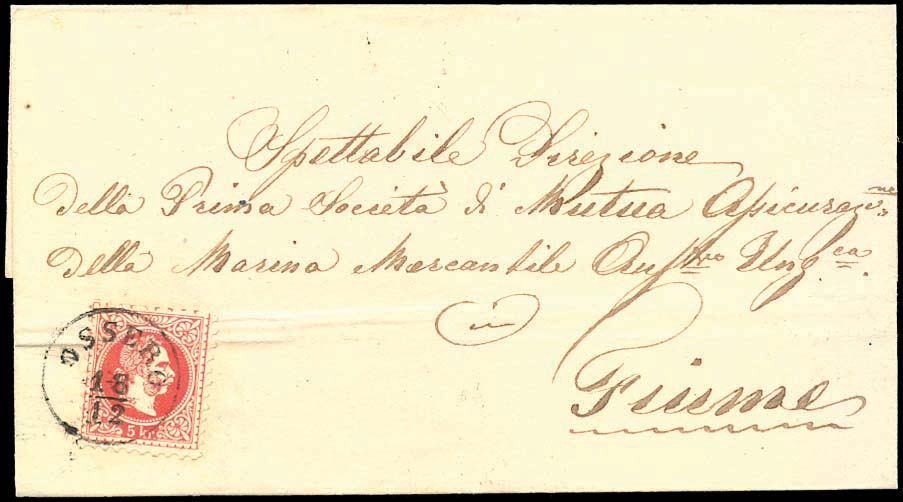 Spettabile Direzione
della Prima Società di Mutua Assicuraz.ne
della Marina Mercantile Aust.ro Ung.ca
in
Fiume
OSSERO
18
12
5 kr